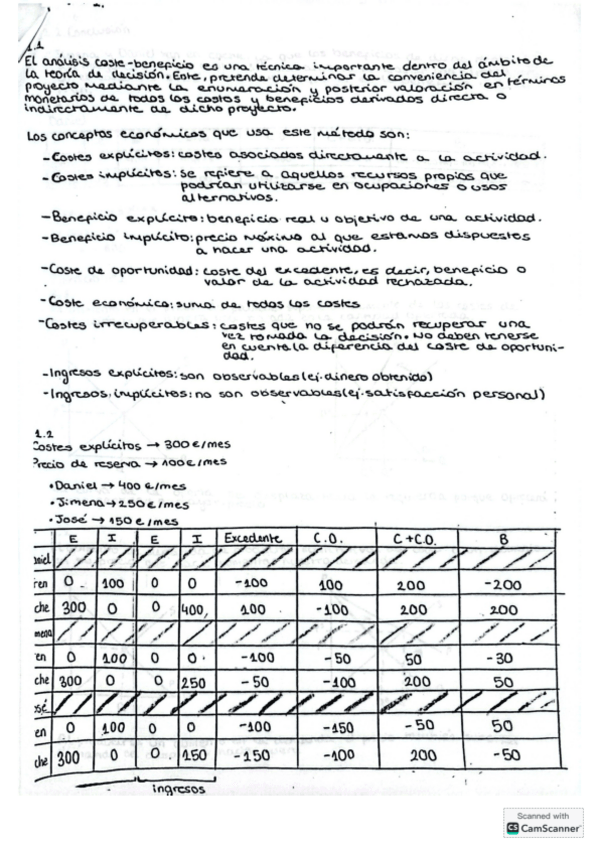 1.1
El análisis coste-beneficio es una técnica importante dentro del ámbito de
la teoría de decisión. Este, pretende determinar la conveniencia del
proyecto mediante la enumeración y posterior valoración en términos
monetarios de todos los costos y beneficios derivados directa o
indirectamente de dicho proyecto.
Los conceptos económicos que usa este método son:
-Costes explícitos: costes asociados directamente a la actividad.
-Costes implícitos: se refiere a aquellos recursos propios que
podrían utilizarse en ocupaciones o usos
alternativos.
-Beneficio explícito: beneficio real u objetivo de una actividad.
-Beneficio implícito: precio máximo al que estamos dispuestos
a hacer una actividad.
-Coste de oportunidad: coste del excedente, es decir, beneficio o
valor de la actividad rechazada.
-Coste económico: suma de todos los costes
-Costes irrecuperables: costes que no se podrán recuperar una
vez tomada la decisión. No deben tenerse
en cuenta la diferencia del coste de oportuni-
dad.
-Ingresos explícitos: son observables (ej. dinero obtenido)
-Ingresos implícitos: no son observables (ej. satisfacción personal)
1.2
Costes explícitos → 300€/mes
Precio de reserva → 100€/mes
• Daniel → 400€/mes
• Jimena → 250€/mes
• José → 150€/mes
E I E I Excedente C.O. C+C.O. B
niel
ren 0 100 0 0 -100 100 200 -200
che 300 0 0 400 100 -100 200 200
mena
en 0 100 0 0 -100 -50 50 -30
che 300 0 0 250 -50 -100 200 50
sé
en 0 100 0 0 -100 -150 -50 50
che 300 0 0 150 -150 -100 200 -50
ingresos
Scanned with
CS CamScanner